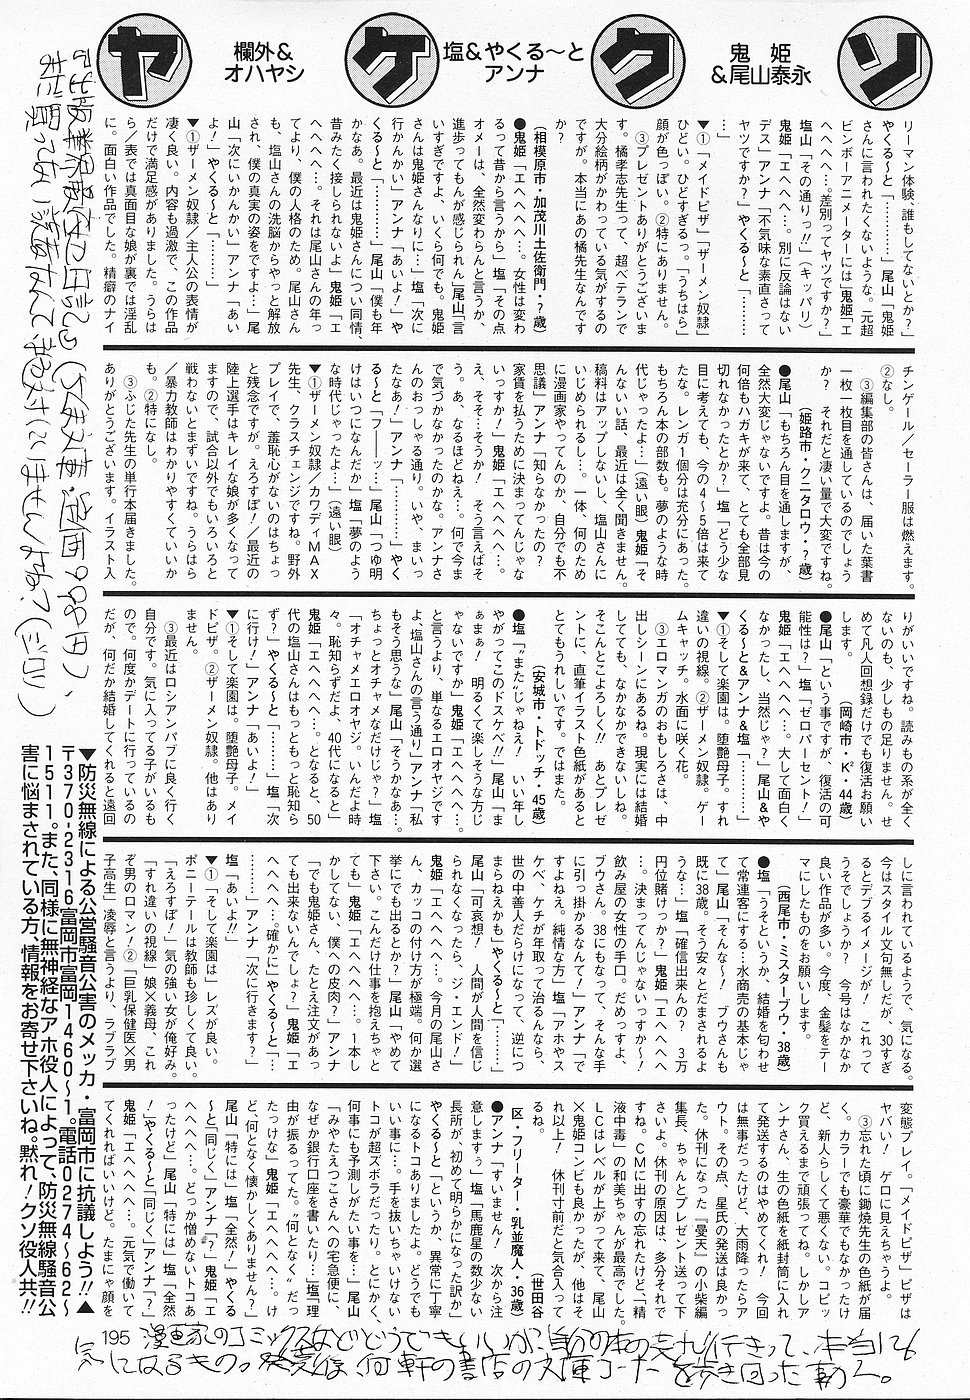 ヤケクソ
欄外&
オハヤシ
塩&やくる〜と
アンナ
鬼姫
&尾山泰永
リーマン体験、誰もしてないとか?」
やくる〜と「………」尾山「鬼姫
さんに言われたくないような。元超
ビンボーアニメーターには」鬼姫「エ
へへへへ…。差別ってヤツですか?」
塩山「その通りっ!!」(キッパリ)
鬼姫「エへへへ…。別に反論はない
デス」アンナ「不気味な素直さって
ヤツですか?」やくる〜と「……」
▼①「メイドビザ」「ザーメン奴隷」
ひどい。ひどすぎるっ。「うちはら」
顔が色っぽい。②特にありません。
③プレゼントありがとうございま
す。橘孝志先生って、超ベテランで
大分絵柄がかわっている気がするの
ですが。本当にあの橘先生なんです
か?
(相模原市・加茂川土佐衛門・?歳)
●鬼姫「エへへへへ…。女性は変わ
るって昔から言うから」塩「その点
オメーは、全然変わらんと言うか、
進歩ってもんが感じられん」尾山「言
いすぎですよ、いくら何でも。鬼姫
さんは鬼姫さんなりに」塩「次に
行かんかい」アンナ「あいよ!」や
くる〜と「………」尾山「僕も年
かなあ。最近は鬼姫さんについ同情、
昔みたく接しられないよ」鬼姫「エ
へへへへ…。それは尾山さんの年っ
てより、僕の人格のため。尾山さん
も、塩山さんの洗脳からやっと解放
され、僕の真実の姿をですよ…」尾
山「次にいかんかい」アンナ「あい
よ!」やくる〜と「………」
▼①ザーメン奴隷/主人公の表情が
凄く良い。内容も過激で、この作品
だけで満足感がありました。うらは
ら/表では真面目な娘が裏では淫乱
に。面白い作品でした。精癖のナイ
チンゲール/セーラー服は燃えます。
②なし。
③編集部の皆さんは、届いた葉書
一枚一枚目を通しているのでしょう
か? それだと凄い量で大変ですね。
(姫路市・クニタロウ・?歳)
●尾山「もちろん目を通しますが、
全然大変じゃないですよ。昔は今の
何倍もハガキが来て、とても全部見
切れなかったとか?」塩「どう少な
目に考えても、今の4〜5倍は来て
たな。レンガ1個分は充分にあった。
もちろん本の部数も。夢のような時
代じゃったよ…」(遠い眼)鬼姫「そ
んないい話、最近は全く聞きません。
稿料はアップしないし、塩山さんに
いじめられるし…。一体、何のため
に漫画家やってんのか、自分でも不
思議」アンナ「知らなかったの?
家賃を払うために決まってんじゃな
いっすか!」鬼姫「エへへへへ…。
え、そそ…そうか! そう言えばそ
う。あ、なるほどねえ…。何で今ま
で気づかなかったのかな。アンナさ
んのおっしゃる通り。いや、まいっ
たなあ!」アンナ「………」やく
る〜と「フ――ッ…」尾山「つゆ明
けはいつになるんだか」塩「夢のよう
な時代じゃったよ…」(遠い眼)
▼①ザーメン奴隷/カワディMAX
先生、クラスチェンジですね。野外
プレイで、羞恥心がないのはちょっ
と残念ですが。えろすぽ!/最近の
陸上選手はキレイな娘が多くなって
ますので、試合以外でもいろいろと
戦わないとまずいですね。うらはら
/暴力教師はわかりやすくていいか
も。②特になし。
③ふじた先生の単行本届きました。
ありがとうございます。イラスト入
りがいいですね。読みもの系が全く
ないのも、少しもの足りません。せ
めて凡人回想録だけでも復活お願い
します。 (岡崎市・K²・44歳)
●尾山「という事ですが、復活の可
能性は?」塩「ゼロパーセント!」
鬼姫「エへへへへ…。大して面白く
なかったし、当然じゃ?」尾山&や
くる〜と&アンナ&塩「………」
▼①そして楽園は。堕艶母子。すれ
違いの視線。②ザーメン奴隷。ゲー
ムキャッチ。水面に咲く花。
③エロマンガのおもしろさは、中
出しシーンにあるね。現実には結婚
してても、なかなかできないしね。
そこんとこよろしく!! あとプレゼ
ントに、直筆イラスト色紙があると
とてもうれしいです。ではまた。
(安城市・トドッチ・45歳)
●塩「〝また〟じゃねえ! いい年し
やがってこのドスケベ!!」尾山「ま
ぁまぁ! 明るくて楽しそうな方じ
ゃないですか」鬼姫「エへへへへ…。
と言うより、単なるエロオヤジです
よ、塩山さんの言う通り」アンナ「私
もそう思うな」尾山「そうかなあ…。
ちょっとオチャメなだけじゃ?」塩
「オチャメエロオヤジ。いんだよ時
々。恥知らずだよ、40代になると」
鬼姫「エへへへへ…。となると、50
代の塩山さんはもっともっと恥知ら
ず?」やくる〜と「………」塩「次
に行け!」アンナ「あいよ!」
▼①そして楽園は。堕艶母子。メイ
ドビザ。②ザーメン奴隷。他はあり
ません。
③最近はロシアンパブに良く行く
自分です。気に入ってる子がいるも
ので。何度かデートに行っているの
だが、何だか結婚してくれると遠回
しに言われているようで、気になる。
今はスタイル文句無しだが、30すぎ
るとデブるイメージが! これって
うそでしょうか? 今号はなかなか
良い作品が多い。今度、金髪をテー
マにしたものをお願いします。
(西尾市・ミスターブウ・38歳)
●塩「うそというか、結婚を匂わせ
て常連客にする…水商売の基本じゃ
て」尾山「そんな〜! ブウさんも
既に38歳。そう安々とだまされるよ
うな…」塩「確信出来んの? 3万
円位賭けっか?」鬼姫「エへへへへ
…。決まってんじゃないっすかァ、
飲み屋の女性の手口。だめっすよ、
ブウさん。38にもなって、そんな手
に引っ掛かるなんて!」アンナ「で
すよねえ。純情な方」塩「アホやス
ケべ、ケチが年取って治るんなら、
世の中善人だらけになって、逆につ
まらねえかも」やくる〜と「………」
尾山「可哀想! 人間が人間を信じ
られなくなったら、ジ・エンド!」
鬼姫「エへへへへ…。今月の尾山さ
ん、カッコの付け方が極端。何か選
挙にでも出るとか?」尾山「やめて
下さい。こんだけ仕事を抱えちゃと
ても」鬼姫「エへへへへ…。1本し
かしてない、僕への皮肉?」アンナ
「でも鬼姫さん、たとえ注文があっ
ても出来ないんでしょ?」鬼姫「エ
へへへへ…。確かに」やくる〜と「…
……」アンナ「次に行きます?」
塩「あいよ!!」
▼①「そして楽園は」レズが良い。
ポニーテールは教師も珍しくて良い。
「えろすぽ!」気の強い女が俺好み。
「すれ違いの視線」娘×義母、これ
ぞ男のロマン!②「巨乳保健医×男
子高生」凌辱と言うより、ラブラブ
変態プレイ。「メイドビザ」ビザは
ヤバい! ゲロに見えちゃうよ。
③忘れた頃に鋤焼先生の色紙が届
く。カラーでも豪華でもなかったけ
ど、新人らしくて悪くない。コピッ
ク買えるまで頑張ってね。しかしア
ンナさん、生の色紙を紙封筒に入れ
て発送するのはやめてくれ! 今回
は無事だったけど、大雨降ったらア
ウト。その点、星氏の発送は良かっ
た。休刊になった『曼天』の小柴編
集長、ちゃんとプレゼント送って下
さいよ。休刊の原因は、多分それで
すね。CMに出すの忘れたけど、「精
液中毒」の和美ちゃんが最高でした。
LCはレベルが上がってます。尾山
×鬼姫コンビも良かったが、他はそ
れ以上! 休刊寸前だと気合入って
るね。 (世田谷
区・フリーター・乳並魔人・36歳)
●アンナ「すいません! 次から注
意しますぅ」塩「馬鹿星の数少ない
長所が、初めて明らかになった訳か」
やくる〜と「というか、異常に丁寧
になるトコありましたよ。どうでも
いい事に…。手を抜いちゃいけない
トコが超ズボラだったり。とにかく、
何事にも予測しがたい事を…」尾山
「みやたえつこさんへの宅急便に、
なぜか銀行口座を書いたり…」塩「理
由が振るってた。〝何となく〟だっ
たっけな」鬼姫「エへへへへ…。け
ど、何となく懐かしくありません?」
尾山「特には」塩「全然!」やくる
〜と「同じく」アンナ「?」鬼姫「エ
へへへへ…。どっか憎めないトコあ
ったけど」尾山「特には」塩「全然
!」やくる〜と「同じく」アンナ「?」
鬼姫「エへへへへ…。元気で働いて
てくれればいいけど。たまにゃ顔を
▼防災無線による公営騒音公害のメッカ・富岡市に抗議しよう!!▲
〒370-2316富岡市富岡1460〜1。電話0274〜62〜
1511。また、同様に無神経なアホ役人によって、防災無線騒音公
害に悩まされている方、情報をお寄せ下さいね。黙れ!クソ役人共!!
195
漫画家のコミックスなどどうでもいいが、自分の本の売れ行きって、本当に
気になるもの。発売後、何軒の書店の文庫コーナーを歩き回った事か。